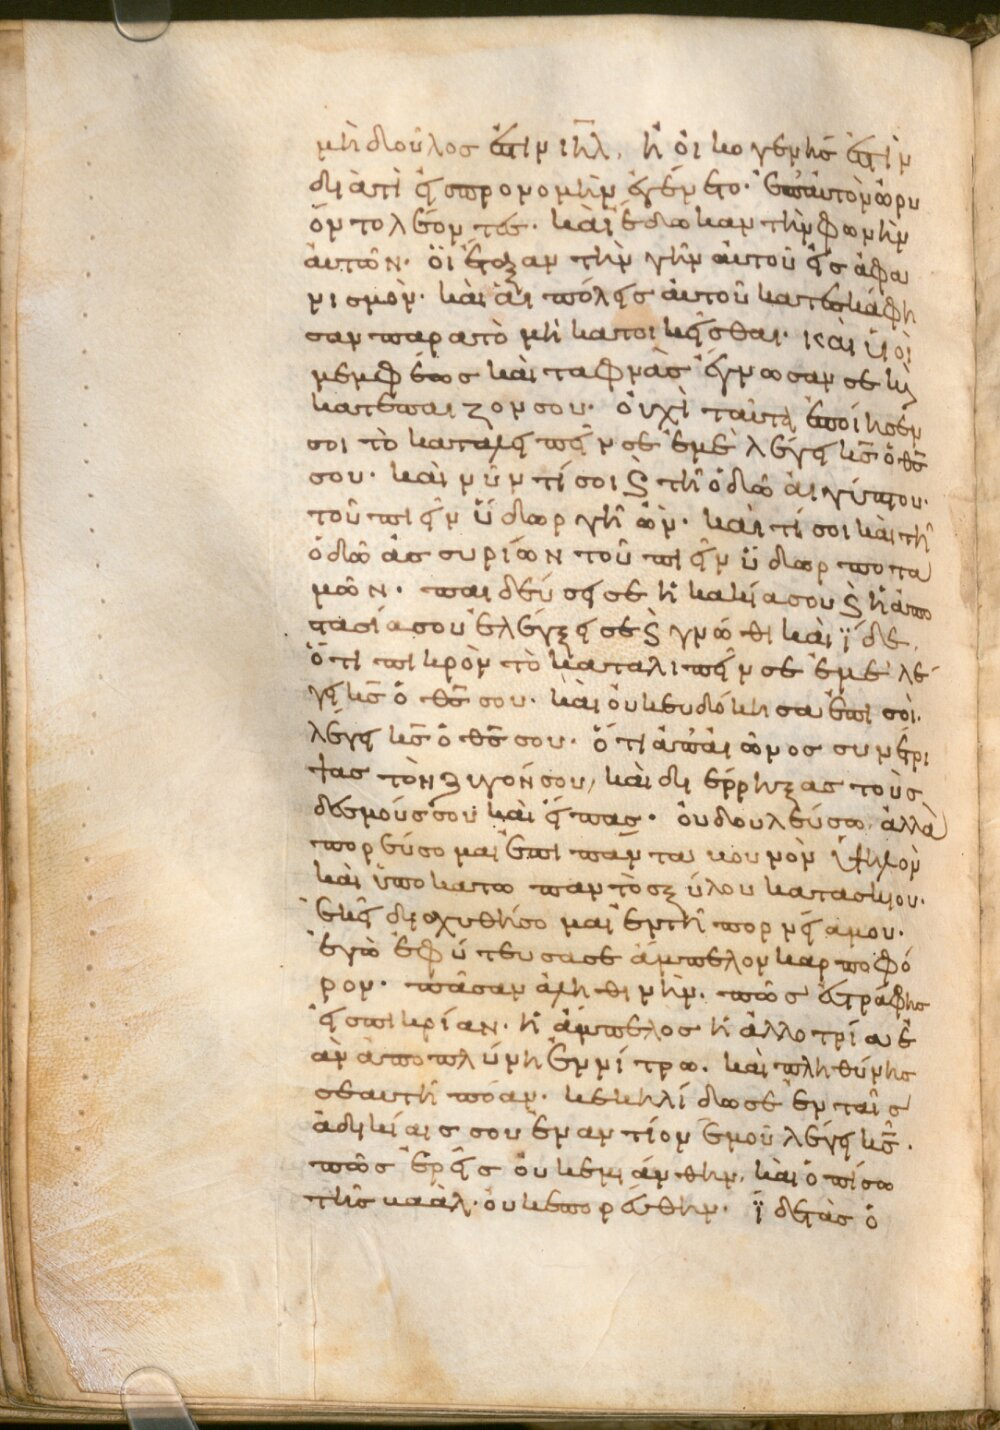 μὴ δοῦλός ἐστιν ιη̅λ, ἢ οἰκογενής ἐστιν
διατί εἰς προνομὴν ἐγένετο· ἐπ' αὐτὸν ὠρύ
οντο λέοντες· καὶ ἔδωκαν τὴν φωνὴν
αὐτῶν· οἳ ἔταξαν τὴν γῆν αὐτοῦ εἰς ἀφα
νισμόν· καὶ αἱ πόλεις αὐτοῦ κατεσκάφη
σαν παρα τὸ μὴ κατοικεῖσθαι· καὶ υἱοὶ
μέμφεως καὶ ταφνὰς ἔγνωσάν σε κ(αὶ)
κατέπαιζόν σου· οὐχὶ ταῦτα ἐποίησέν
σοι τὸ καταλειπεῖν σε ἐμὲ λέγει κ̅ς̅ ὁ θ̅ς̅
σου· καὶ νῦν τί σοι ϛ τῆ ὁδῶ αἰγύπτου·
τοῦ πιεῖν ὕδωρ γηῶν· καὶ τί σοι καὶ τῆ
ὁδῶ ἀσσυρίων τοῦ πιεῖν ὕδωρ ποτα
μῶν· παιδεύσει σε ἡ κακία σου ϛ ἡ ἀπο
στασία σου ἐλέγξει σε ϛ γνῶθι καὶ ἴδε,
ὅτι πικρὸν τὸ καταλιπεῖν σε ἐμὲ λέ
γει κ̅ς̅ ὁ θ̅ς̅ σου· καὶ οὐκ εὐδόκησα ἐπί σοι·
λέγει κ̅ς̅ ὁ θ̅ς̅ σου· ὅτι ἀπ' αἰῶνος συνέτρι
ψας τὸν ζυγόν σου, καὶ διέρρηξας τοὺς
δεσμούς σου καὶ εἶπας· οὐ δουλεύσω, ἀλλὰ
πορεύσομαι ἐπὶ πάντα βουνὸν ὑψηλὸν
καὶ ὑποκάτω παντὸς ξύλου κατασκίου·
ἐκεῖ διαχυθήσομαι ἐν τῆ πορνεία μου·
ἐγὼ ἐφύτευσά σε ἄμπελον καρποφό
ρον· πᾶσαν ἀληθινήν. πῶς ἐστράφης
εἰς πικρίαν· ἡ ἄμπελος ἡ ἀλλοτρία ἐ
ὰν ἀποπλύνη ἐν νίτρω. καὶ πληθύνης
σεαυτῆ πόαν· κεκηλίδωσε ἐν ταῖς
ἀδικίαις σου ἐναντίον ἐμοῦ λέγει κ̅ς̅.
πῶς ἐρεῖς οὐκ ἐμιάνθην, καὶ ὀπίσω
τῆς βαὰλ· οὐκ ἐπορεύθην· ἴδε τὰς ὁ